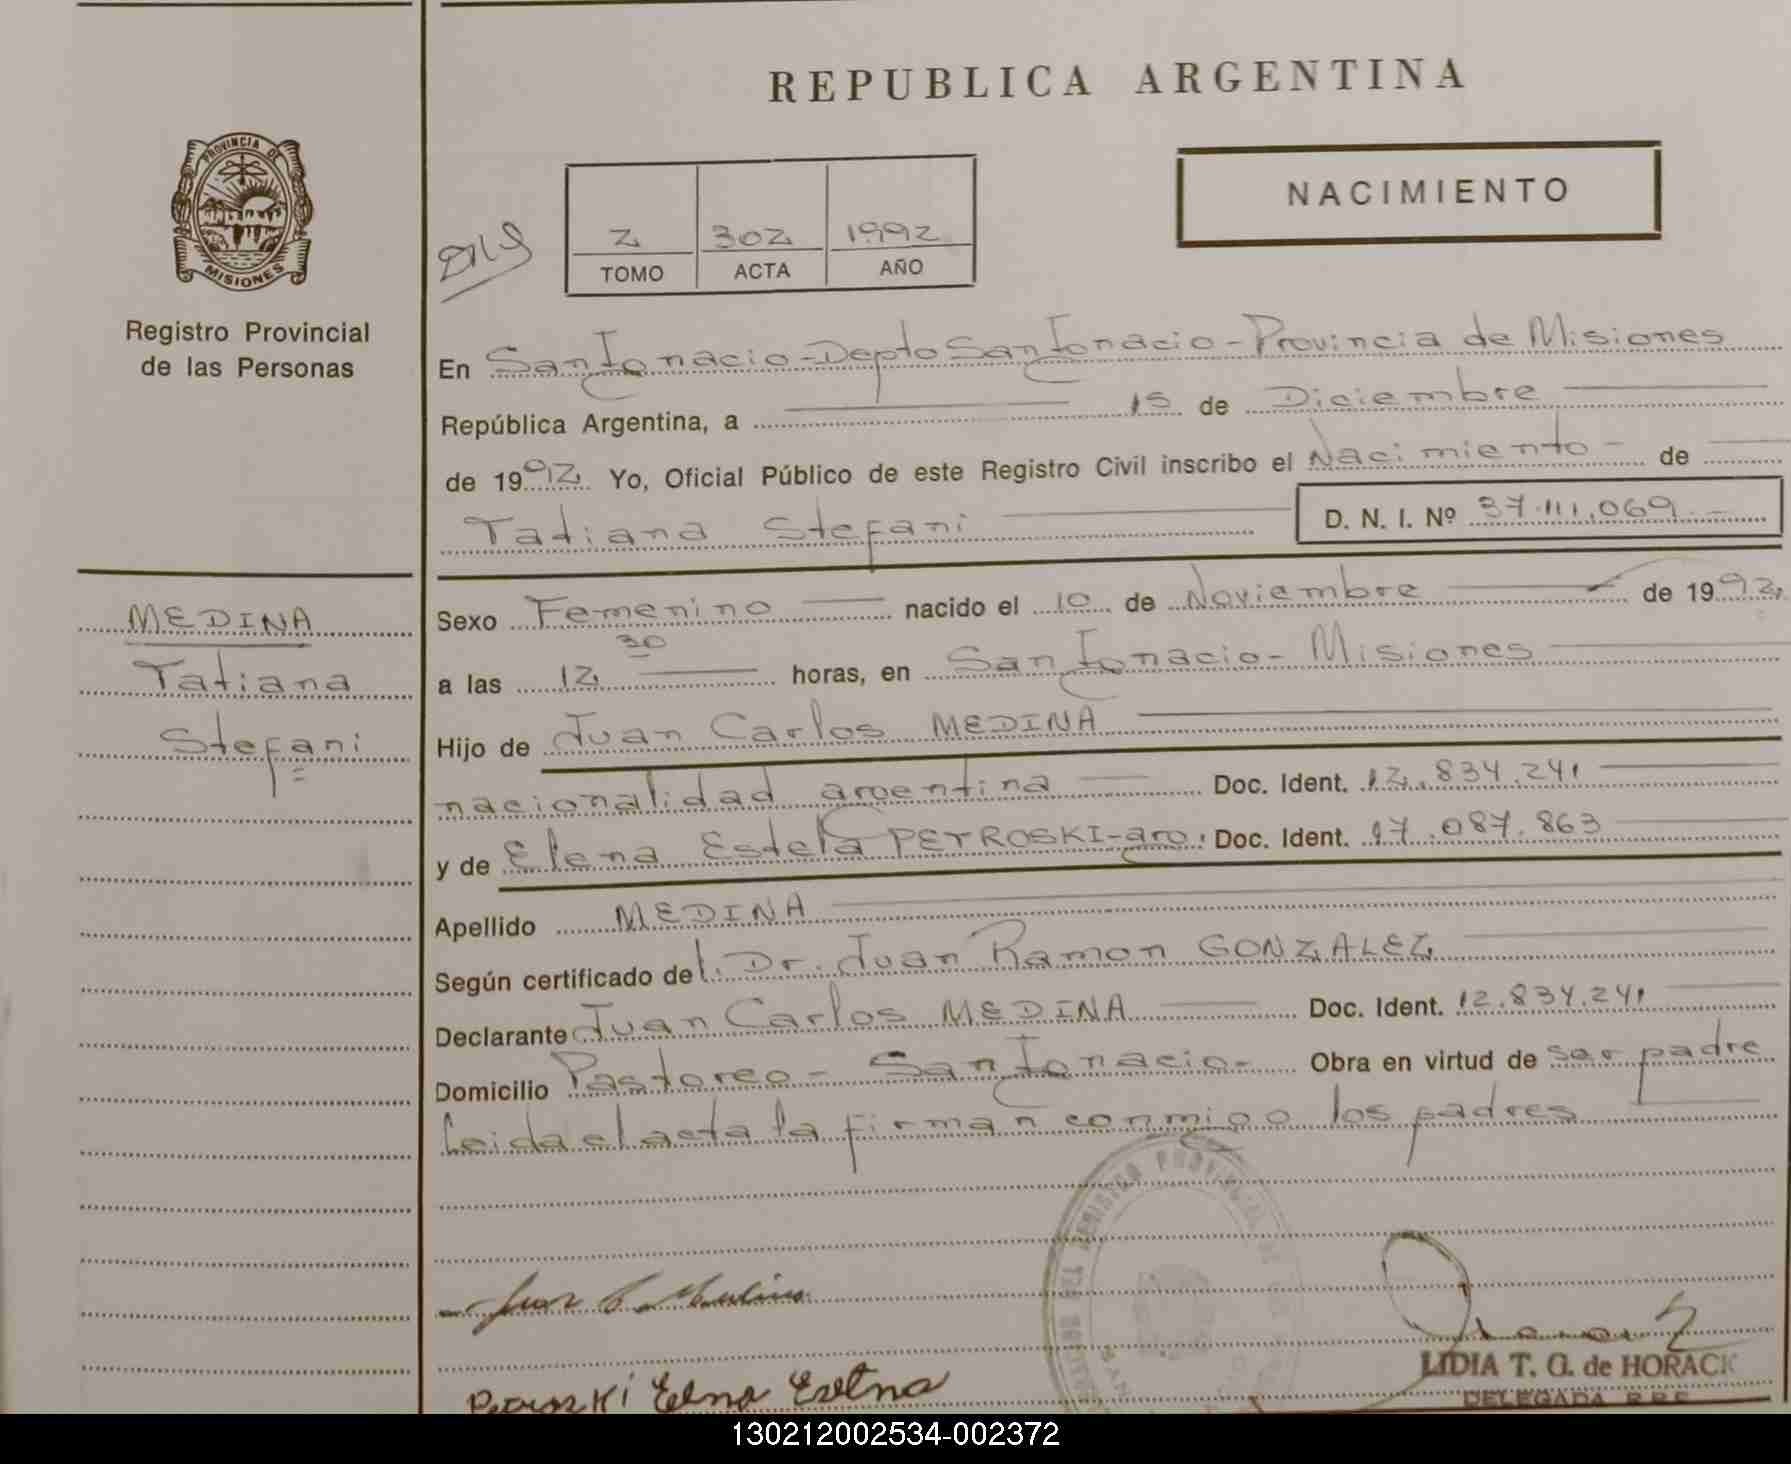 REPUBLICA ARGENTINA
PROVINCIA DE
MISIONES
Registro Provincial
de las Personas
NACIMIENTO
2 302 1992
TOMO ACTA AÑO
En San Ignacio - Depto San Ignacio - Provincia de Misiones
República Argentina, a 15 de Diciembre
de 1992 Yo, Oficial Público de este Registro Civil inscribo el Nacimiento de
Tatiana Stefani D. N. I. Nº 37.111.069
MEDINA
Tatiana
Stefani
Sexo Femenino nacido el 10 de Noviembre de 1992
a las 12 30 horas, en San Ignacio - Misiones
Hijo de Juan Carlos MEDINA
nacionalidad argentina Doc. Ident. 12.834.241
y de Elena Estela PETROSKI-arg. Doc. Ident. 17.087.863
Apellido MEDINA
Según certificado del Dr. Juan Ramon GONZALEZ
Declarante Juan Carlos MEDINA Doc. Ident. 12.834.241
Domicilio Pastoreo - San Ignacio - Obra en virtud de ser padre
Leida el acta la firman conmigo los padres
Juan C. Medina
LIDIA T. G. de HORACK
DELEGADA
130212002534-002372